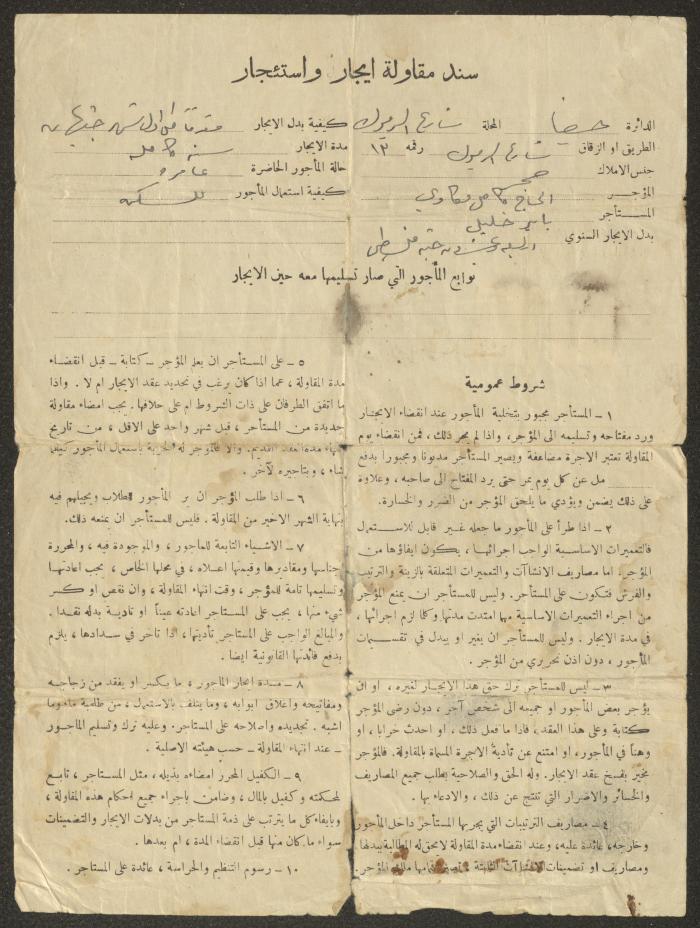 سند مقاولة ايجار واستئجار
الدائرة حيفا المحلة شارع اليرموك كيفية بدل الايجار
الطريق او الزقاق شارع اليرموك رقمه ١٣ مدة الايجار سنة كاملة
جنس الاملاك حالة المأجور الحاضرة عامره
المؤجر الحاج كامل كيفية استعمال المأجور للسكن
المستأجر خليل
بدل الايجار السنوي
توابع المأجور التي صار تسليمها معه حين الايجار
شروط عمومية
١ - المستأجر مجبور بتخلية المأجور عند انقضاء الايجار
ورد مفتاحه وتسليمه الى المؤجر، واذا لم يجر ذلك، فمن انقضاء يوم
المقاولة تعتبر الاجرة مضاعفة ويصير المستأجر مديونا ومجبورا بدفع
مل عن كل يوم يمر حتى يرد المفتاح الى صاحبه، وعلاوة
على ذلك يضمن ويؤدي ما يلحق المؤجر من الضرر والخسارة.
٢ - اذا طرأ على المأجور ما جعله غير قابل للاستعمال
فالتعميرات الاساسية الواجب اجرائها، يكون ايفاؤها من
المؤجر، اما مصاريف الانشاآت والتعميرات المتعلقة بالزينة والترتيب
والفرش فتكون على المستأجر. وليس للمستأجر ان يمنع المؤجر
من اجراء التعميرات الاساسية مهما امتدت مدتها وكلما لزم اجرائها،
في مدة الايجار. وليس للمستأجر ان يغير او يبدل في تقسيمات
المأجور، دون اذن تحريري من المؤجر.
٣ - ليس للمستأجر ترك حق هذا الايجار لغيره، او ان
يؤجر بعض المأجور او جميعه الى شخص آخر، دون رضى المؤجر
كتابة وعلى هذا العقد، فاذا ما فعل ذلك، او احدث خرابا، او
وهناً في المأجور، او امتنع عن تأدية الاجرة المسماة بالمقاولة. فالمؤجر
مخير بفسخ عقد الايجار. وله الحق والصلاحية بطلب جميع المصاريف
والخسائر والاضرار التي تنتج عن ذلك، والادعاء بها.
٤ - مصاريف الترتيبات التي يجريها المستأجر داخل المأجور
وخارجه، عائدة عليه، وعند انقضاء مدة المقاولة لا يحق له المطالبة ببدلها
ومصاريف او تضمينات الانشاآت الثابتة، المؤجر.
٥ - على المستأجر ان يعلم المؤجر - كتابة - قبل انقضاء
مدة المقاولة، عما اذا كان يرغب في تجديد عقد الايجار ام لا. واذا
ما اتفق الطرفان على ذات الشروط ام على خلافها. يجب امضاء مقاولة
جديدة من المستأجر، قبل شهر واحد على الاقل، من تاريخ
انتهاء مدة العقد القديم. والا فللمؤجر له الحرية باستعمال المأجور كيف
شاء، وبتأجيره لآخر.
٦ - اذا طلب المؤجر ان يري المأجور للطلاب ويجيلهم فيه
بنهاية الشهر الاخير من المقاولة. فليس للمستأجر ان يمنعه ذلك.
٧ - الاشياء التابعة للمأجور، والموجودة فيه، والمحررة
اجناسها ومقاديرها وقيمتها اعلاه، في محلها الخاص، يجب اعادتها
وتسليمها تامة للمؤجر، وقت انتهاء المقاولة، وان نقص او كسر
شيء منها، يجب على المستأجر اعادته عيناً او تأدية بدله نقدا.
والمبالغ الواجب على المستأجر تأديتها، اذا تأخر في سدادها، يلزم
بدفع فائدتها القانونية ايضا.
٨ - مدة ايجار المأجور، ما يكسر او يفقد من زجاجه
ومفاتيحه واغلاق ابوابه، وما يتلف بالاستعمال، من طلمبة ماء وما
اشبه. تجديده واصلاحه على المستأجر. وعليه ترك وتسليم المأجور
- عند انتهاء المقاولة - حسب هيئته الاصلية.
٩ - الكفيل المحرر امضاءه بذيله، مثل المستأجر، تابع
لمحكمته وكفيل بالمال، وضامن باجراء جميع احكام هذه المقاولة،
وبايفاء كل ما يترتب على ذمة المستأجر من بدلات الايجار والتضمينات
سواء ما كان منها قبل انقضاء المدة، ام بعدها.
١٠ - رسوم التنظيم والحراسة، عائدة على المستأجر.